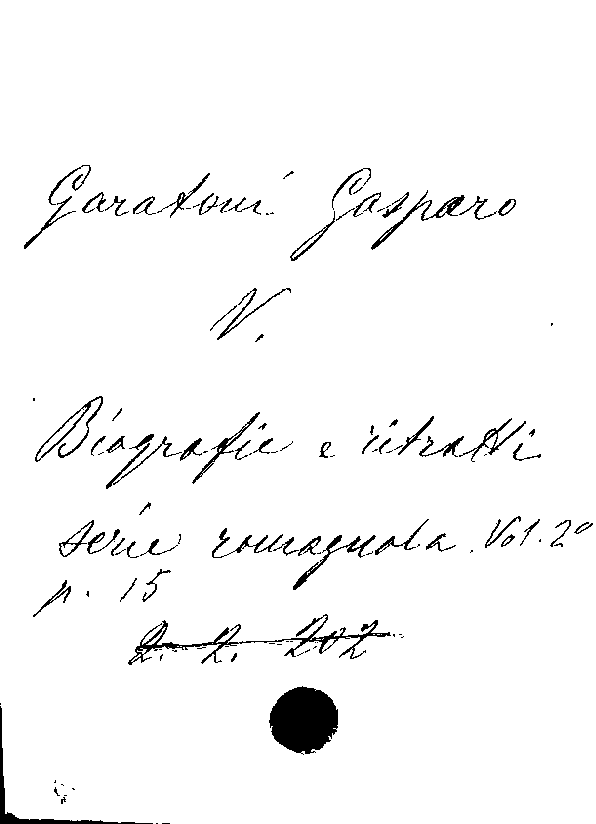 Garatoni Gasparo
V.
Biografie e ritratti
serie romagnola. Vol. 2º
p. 15
2. 2. 202